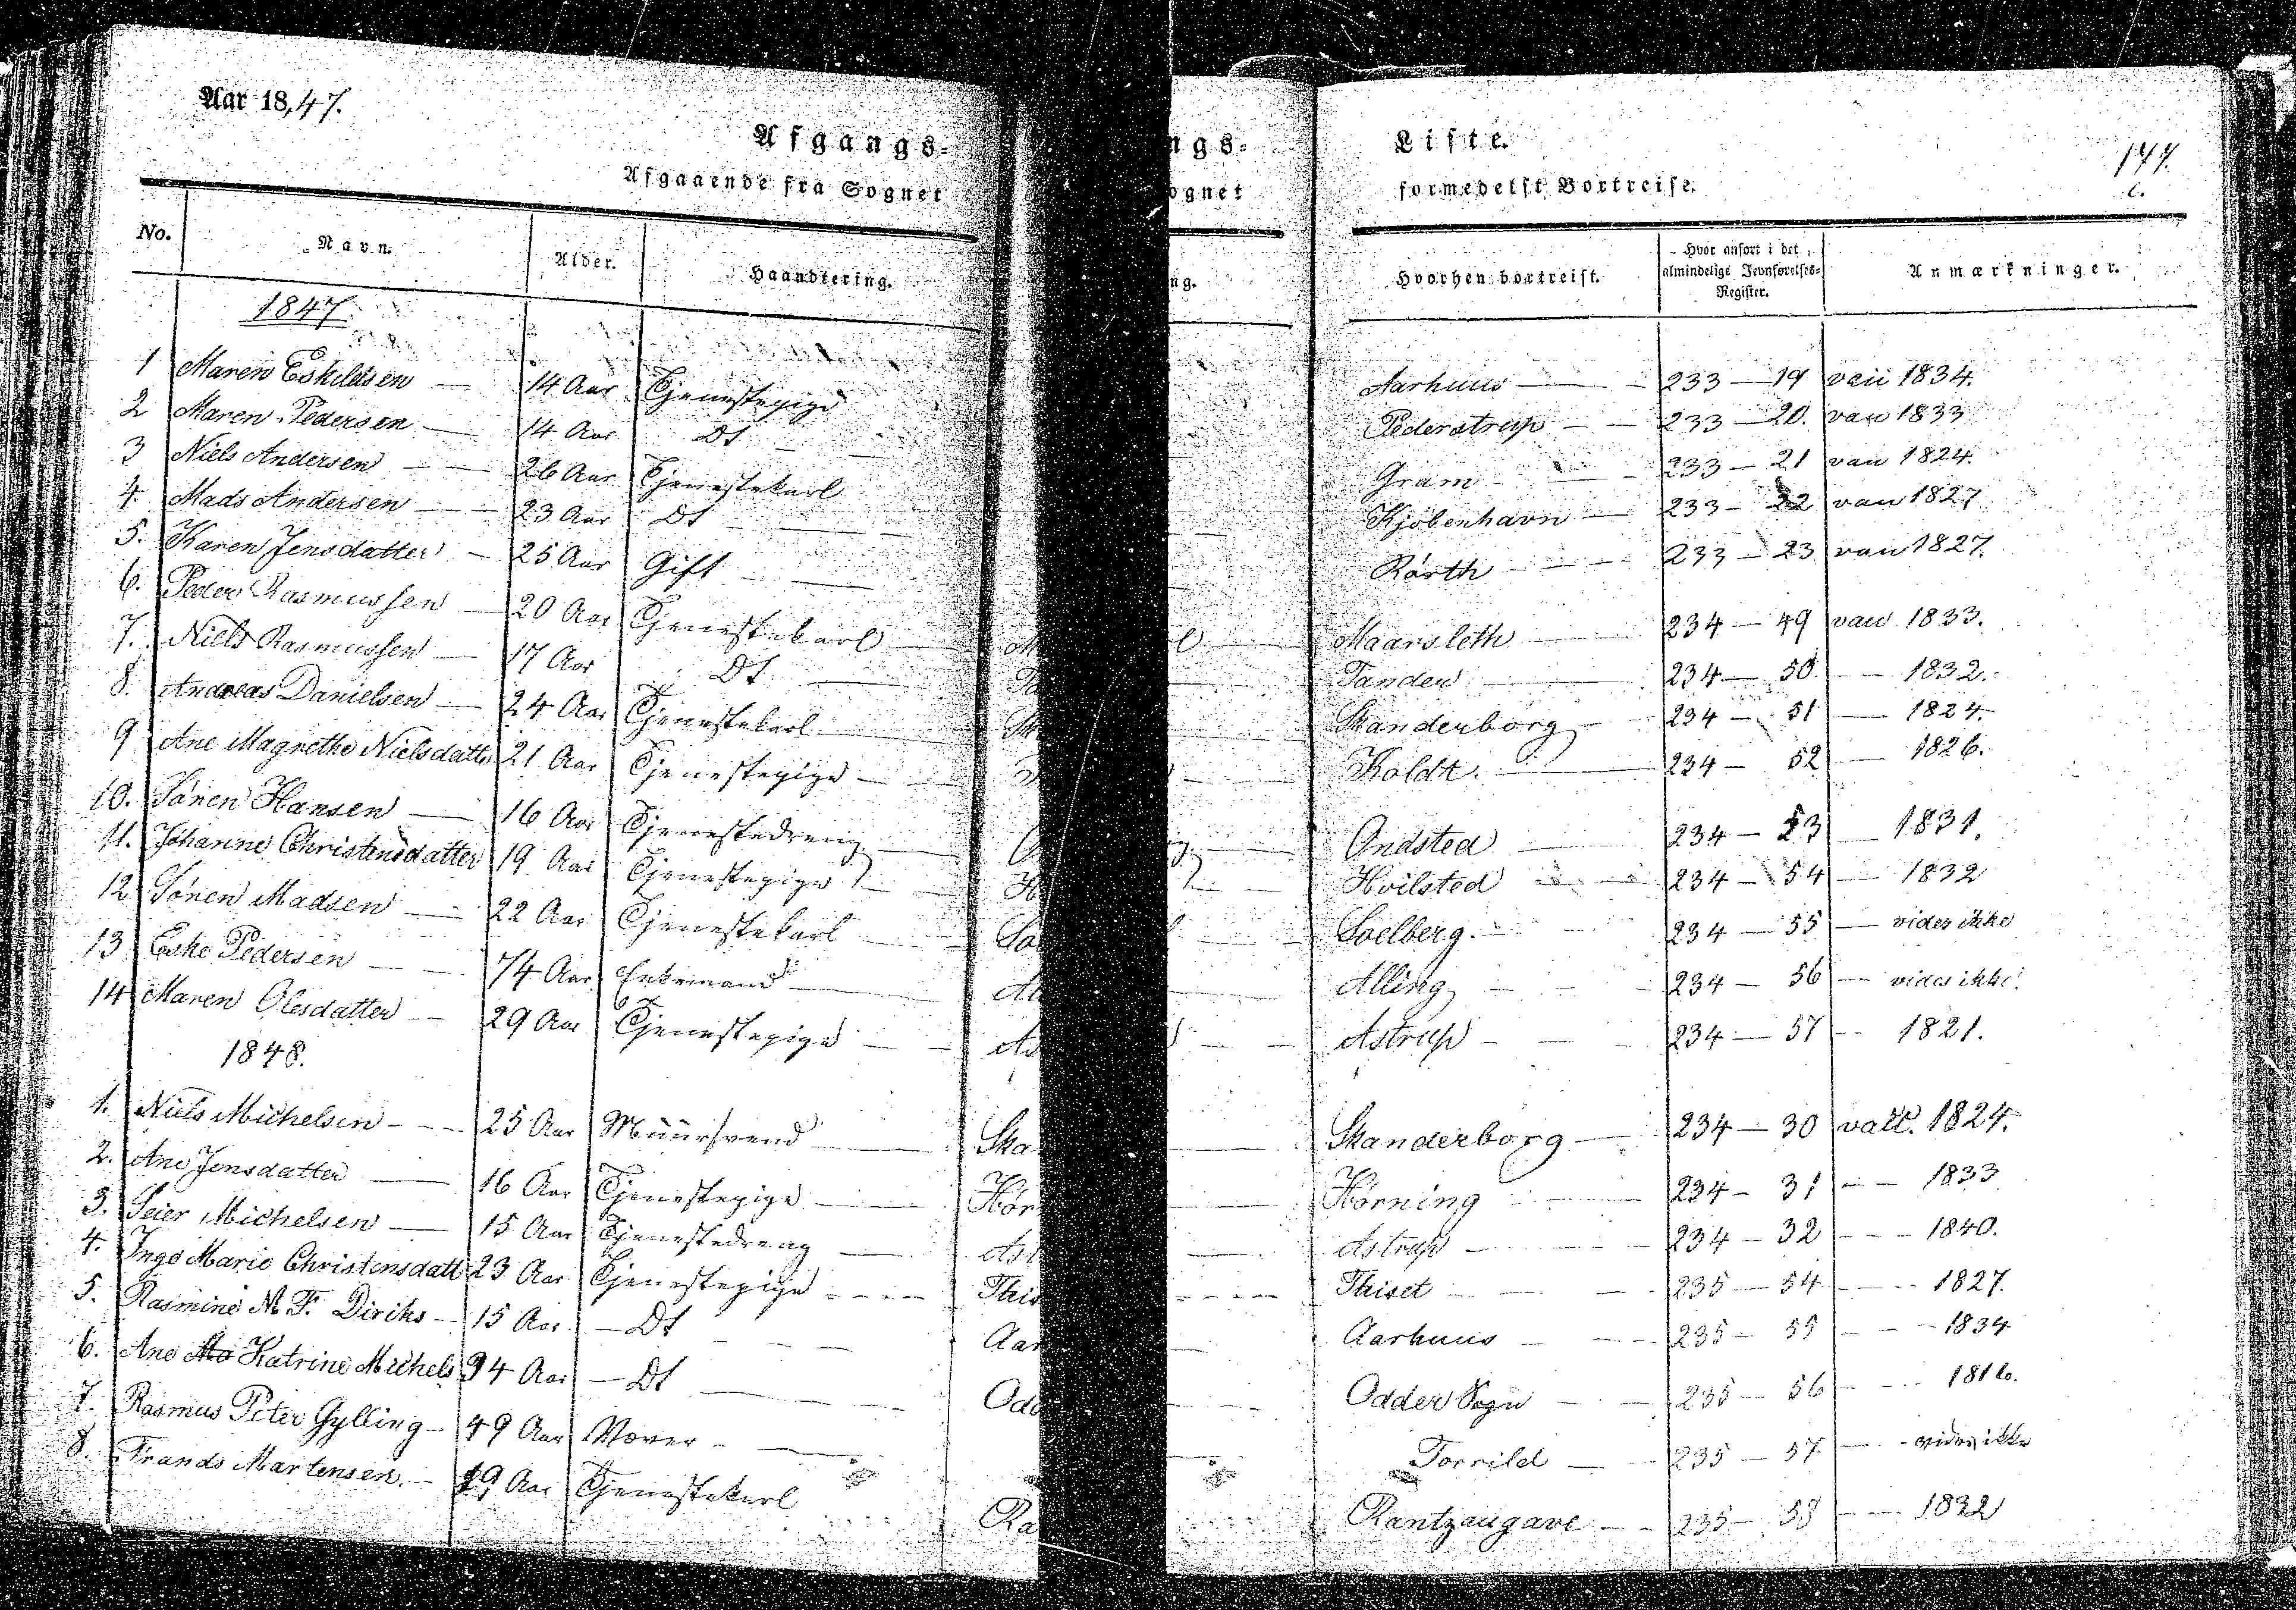 Aar 1847.
Afgangs-
Afgaaende fra Sognet
No. Navn. Alder. Haandtering.
1847
1 Maren Eskildsen — 14 Aar Tjenestepige
2 Maren Pedersen — 14 Aar Dt — —
3 Niels Andersen — — 26 Aar Tjenestekarl
4. Mads Andersen — 23 Aar Dt — — —
5. Karen Jensdatter — 25 Aar Gift — —
6. Peder Rasmussen — 20 Aar Tjenestekarl — M
7. Niels Rasmussen — 17 Aar Dt — Ta
8. Andreas Danielsen — 24 Aar Tjenestekarl — Sk
9 Ane Magrethe Nielsdatter 21 Aar Tjenestepige —
10. Sønen Hansen — 16 Aar Tjenestedreng —
11. Johanne Christensdatter 19 Aar Tjenestepige — H
12 Sønen Madsen — 22 Aar Tjenestekarl — So
13 Eske Pedersen — — 74 Aar Enkemand — Al
14 Maren Olesdatter — 29 Aar Tjenestepige — — As
1848.
1. Niels Michelsen - - - 25 Aar Muursvend — Ska
2. Ane Jensdatter — 16 Aar Tjenestepige — Hør
3. Seier Michelsen — 15 Aar Tjenestedreng — Ast
4. Inge Marie Christensdatt 23 Aar Tjenestepige - - - - This
5. Rasmine M. F. Diriks — 15 Aar — Dt — — Aar
6. Ane Ma Katrine Michels 34 Aar — Dt — — Odd
7. Rasmus Peter Gylling — 49 Aar Væver — —
8. Frands Martensen. — 19 Aar Tjenestekarl Ra
ngs-
ognet
ng.
Liste.
formedelst Bortreise.
147.
Hvorhen bortreist. Hvor anført i det almindelige Jevnførelses-Register. Anmærkninger.
Aarhuus — 233 — 19 van 1834.
Pederstrup — — 233 — 20. van 1833
Gram — — 233 — 21 van 1824.
Kjøbenhavn — 233 — 22 van 1827
Rørth — — — 233 — 23 van 1827.
Maarsleth — 234 — 49 van 1833.
Tander — 234 — 50 — — 1832.
Skanderborg — 234 — 51 — 1824.
Koldt. — 234 — 52 — 1826.
Ondsted — 234 — 53 — 1831.
Hvilsted — — 234 — 54 — 1832
Soelberg. — 234 — 55 — vides ikke
Alling — — — 234 — 56 — vides ikke.
Astrup — — — 234 — 57 — 1821.
Skanderborg — 234 — 30 vacc. 1824.
Hørning — 234 — 31 — — 1833
Astrup — — 234 — 32 — — 1840.
Thiset — — — 235 — 54 — — 1827.
Aarhuus — — — 235 — 55 — — 1834
Odder Sogn — — 235 — 56 — — 1816.
Torrild — — 235 — 57 — - vides ikke
Rantzaugave — - 235 — 58 - — 1832